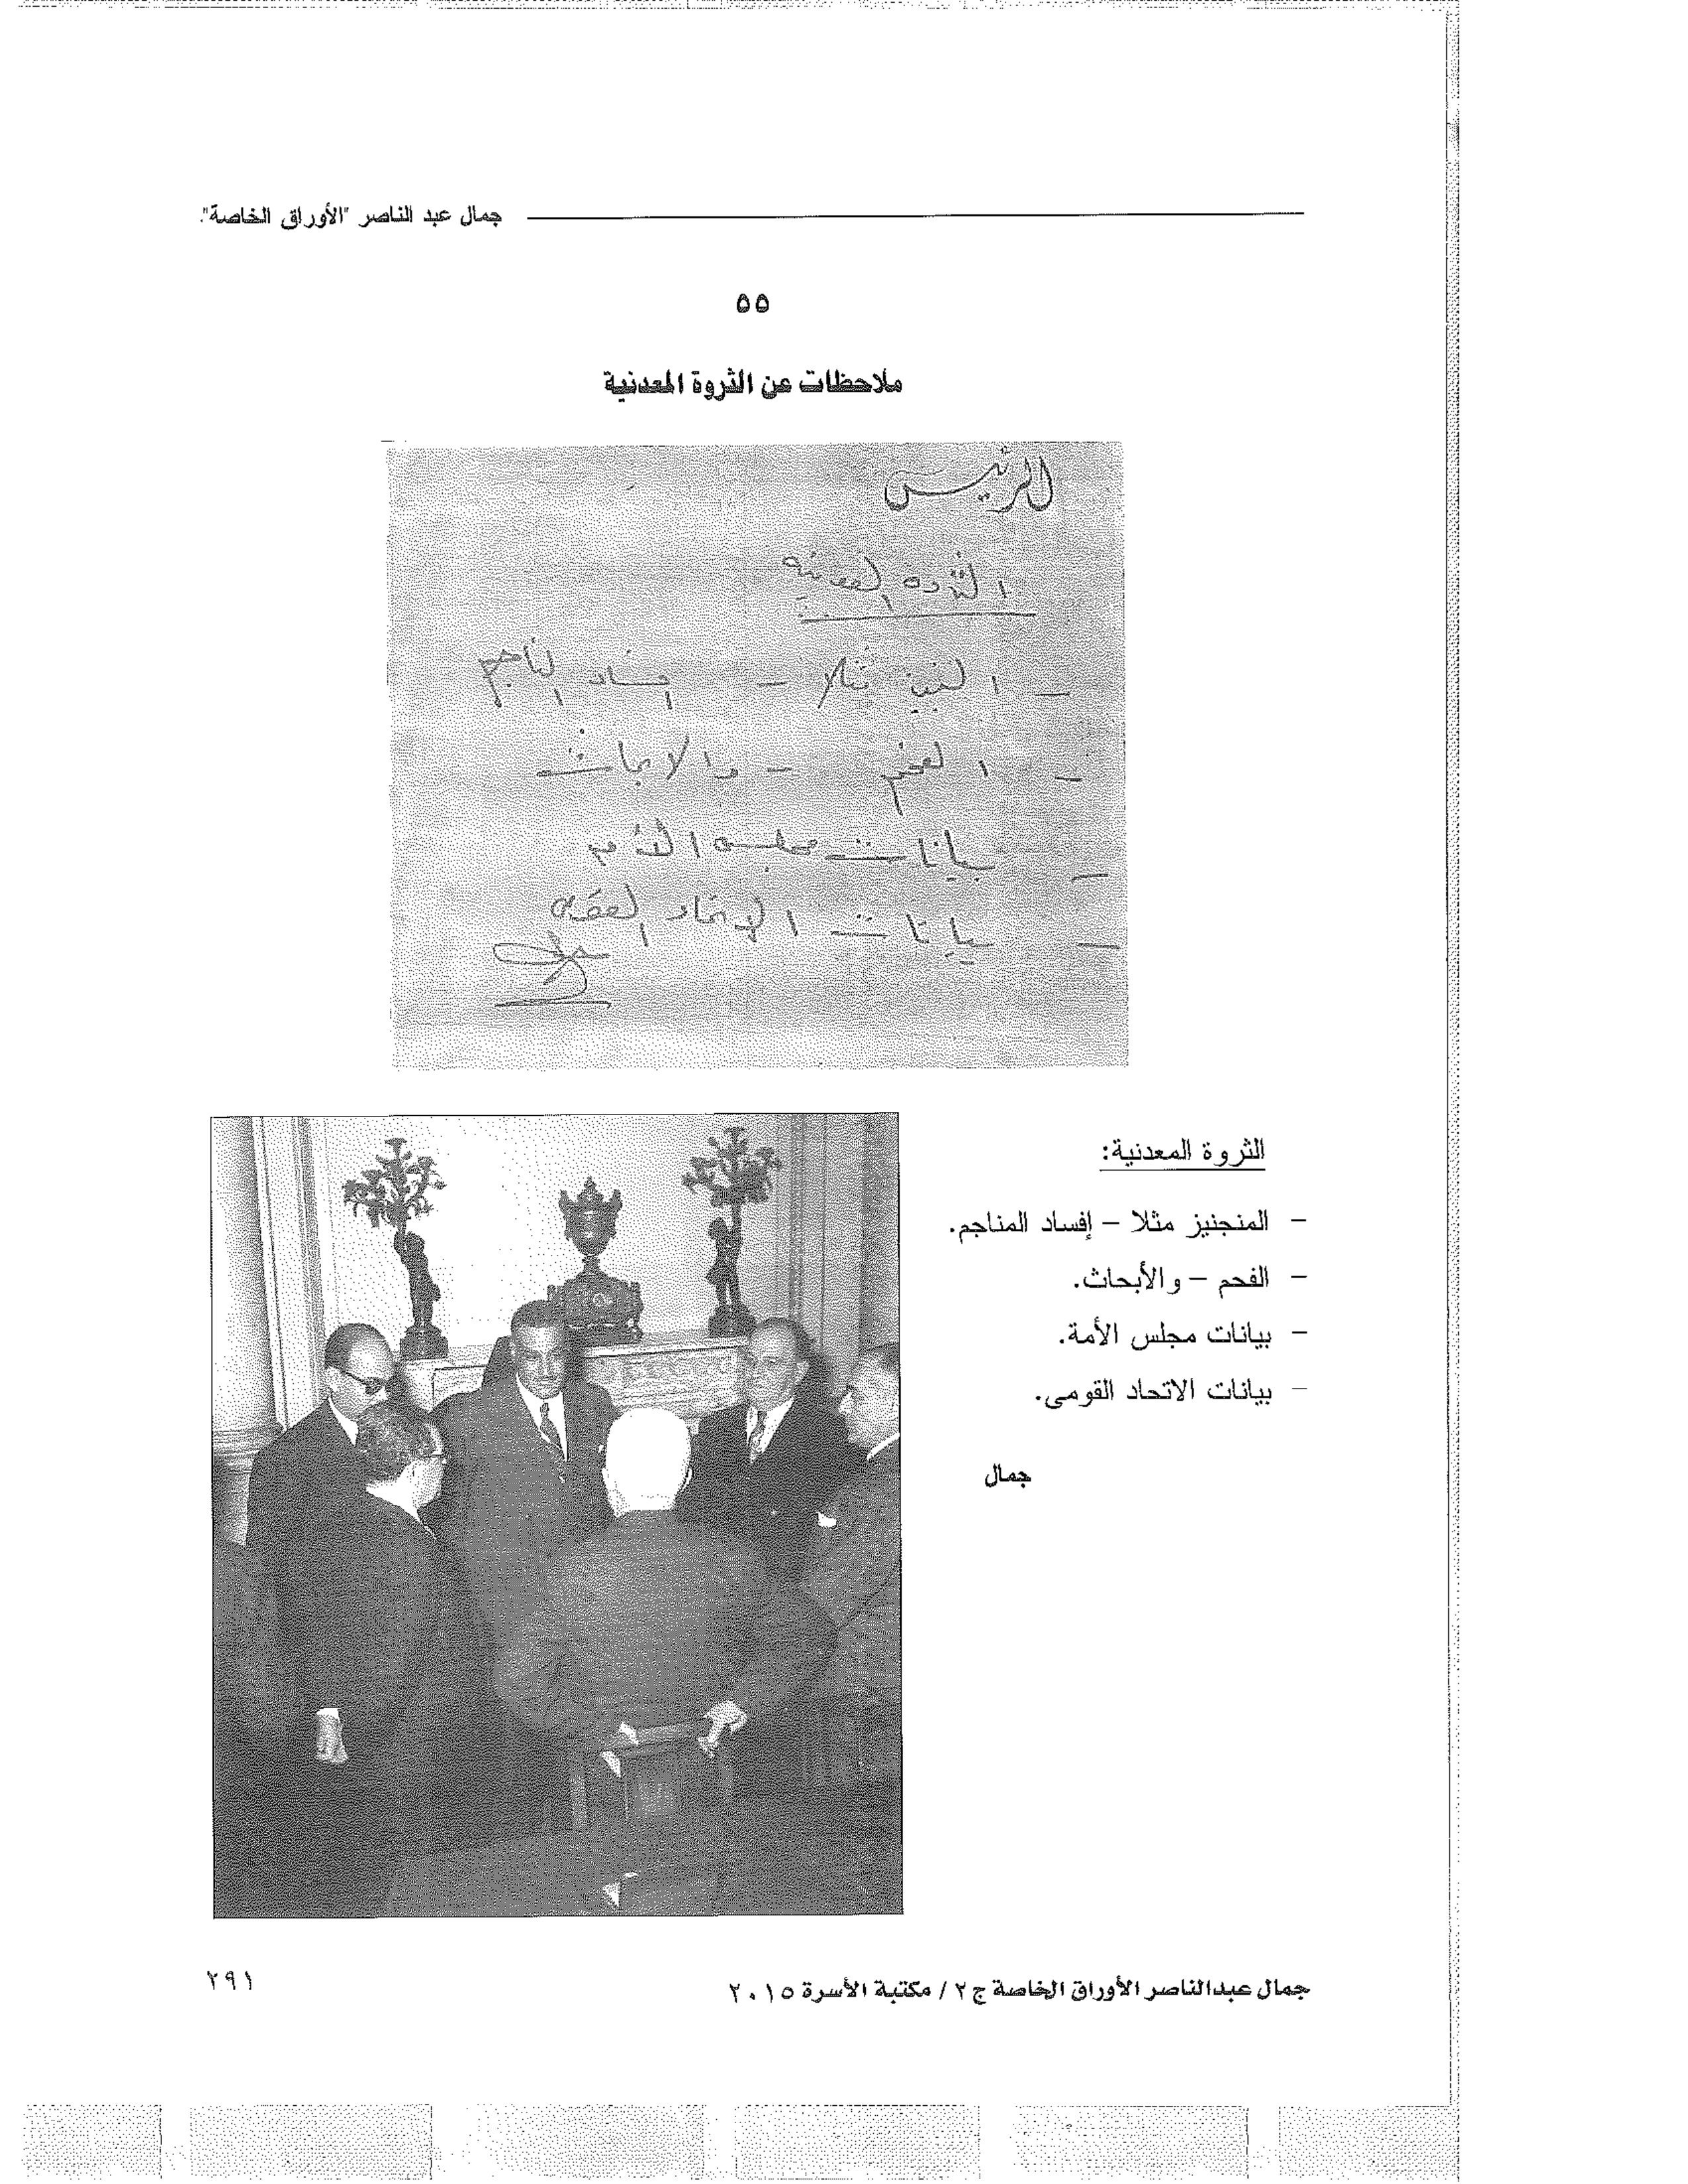 جمال عبد الناصر "الأوراق الخاصة".
٥٥
ملاحظات عن الثروة المعدنية
الرئيس
الثروه المعدنيه
_ المنجنيز مثلا _ إفساد المناجم
_ الفحم _ والابحاث
_ بيانات مجلس الأمه
_ بيانات الاتحاد القومى
الثروة المعدنية:
– المنجنيز مثلا – إفساد المناجم.
– الفحم – والأبحاث.
– بيانات مجلس الأمة.
– بيانات الاتحاد القومى.
جمال
جمال عبدالناصر الأوراق الخاصة ج ٢ / مكتبة الأسرة ٢٠١٥
٢٩١